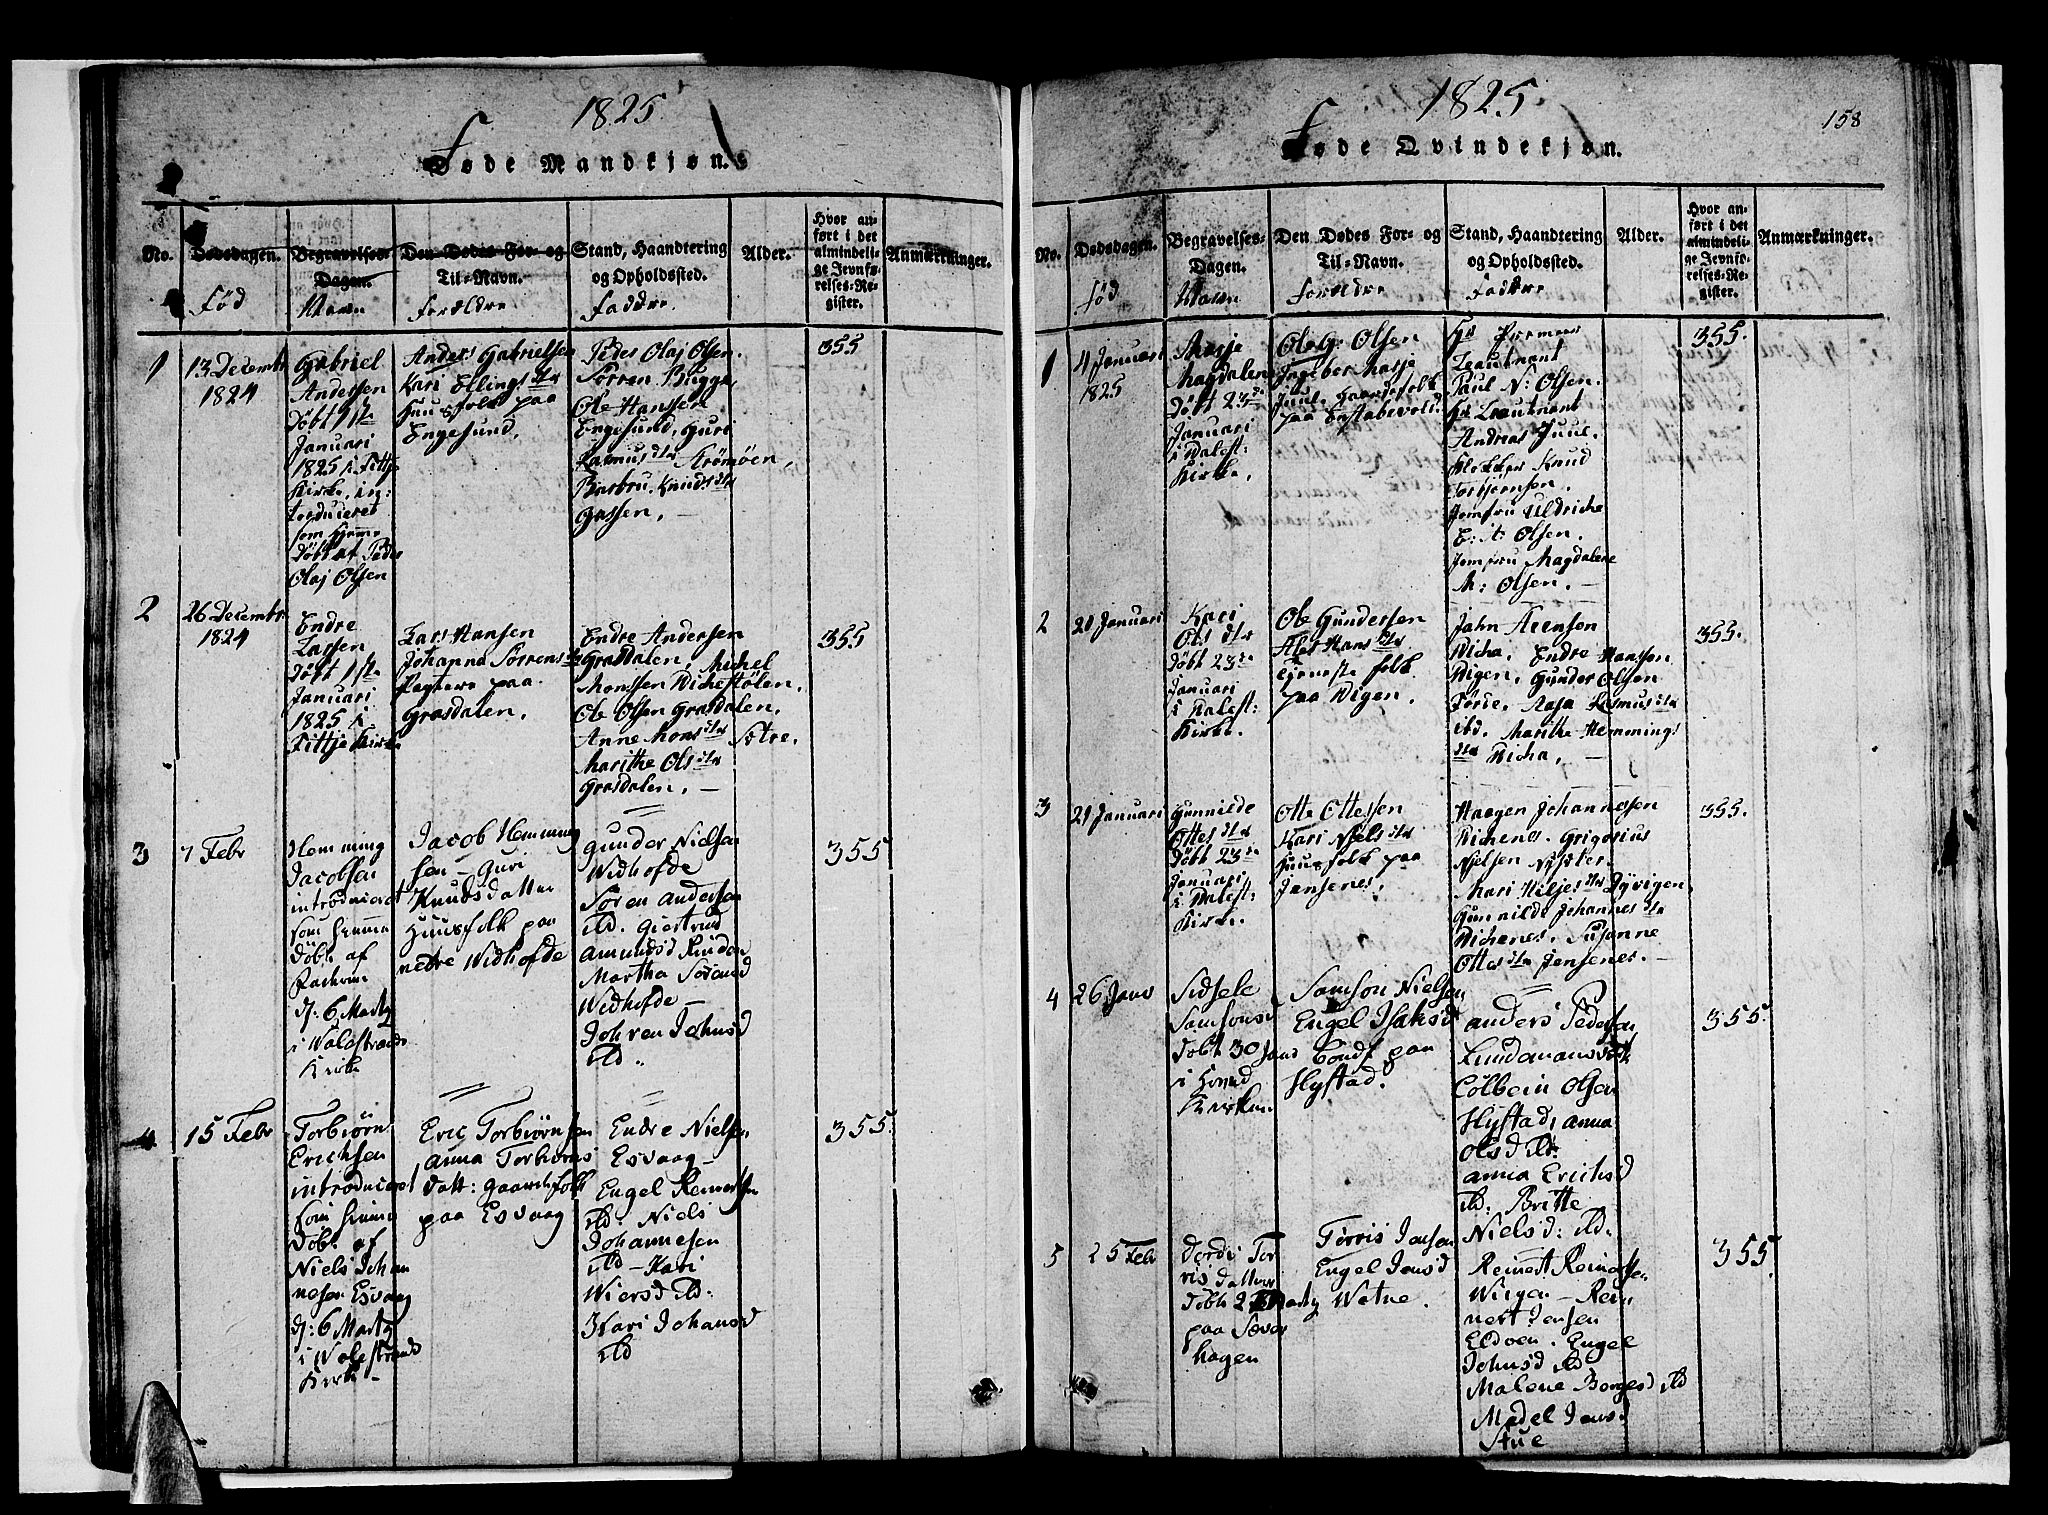 1825
Føde Mandkjøn.
No.
Dødsdagen.
Født
Begravelses-
Dagen.
Navn
Den Dødes For- og
Til-Navn.
Forældre
Stand, Haandtering
og Opholdssted.
Faddere
Alder.
Hvor an-
ført i det
almindeli-
ge Jevnfø-
relses-Re-
gister.
Anmærkninger.
1
13 Decembr
1824
Gabriel
Andersen
Døbt 1ste
Januari
1825 i Fittje
Kirke, in:
troduceret
som hjemme
Døbt af Peder
Olaj Olsen
Anders Gabrielsen
Kari Ellings dtr
Huusfolk paa
Engesund.
Peder Olaj Olsen.
Sørren Bugge,
Ole Hansen
Engesund, Guri
Rasmus dtr Strømøen,
Barbru Knuds dtr
Gassen, —
355
2
26 Decembr
1824
Endre
Larsen
Døbt 1ste
Januari
1825 i
Fittje Kirke
Lars Hansen
Johanna Sørrens dtr
Pagtere paa
Grasdalen.
Endre Andersen
Grasdalen, Michel
Monssen Vichestølen.
Ole Olsen Grasdalen.
Anne Mons dtr Sætre.
Marithe Ols dtr
Grasdalen, —
355
3
7 Febr
Hemming
Jacobsen
introduceret
som hiemme
Døbt af
d: 6 Marty
i Walestrands
Kirke
Jacob Hemming
sen – Guri
Knudsdatter
Huusfolk paa
nedre Widhofde
Gunder Nielsen
Widhofde
Søren Andersen
ibd. Giertrud
Amundsd
Martha Sørensd
Widhofde —
Johnsd
ibd.
355
4
15 Febr
Torbiørn
Erichsen
introduceret
som hiemme
Døbt af
Niels Johan
nesen Esvaag
d: 6 Marty
i Walestrand
Kirke –
Eric Torbiørnsen
Anna Torbiørns
datt: Gaardfolk
paa Esvaag
Endre Nielsen
Esvaag –
Engel Reinertsen
ibd. Niels
Johannesen
ibd – Kari
Wiersd ibd:
Kari Johansd
ibd
355.
1825.
158
Føde Qvindekjøn.
No.
Dødsdagen.
Født
Begravelses-
Dagen.
Navn
Den Dødes For- og
Til-Navn.
Forældre
Stand, Haandtering
og Opholdssted.
Faddere
Alder.
Hvor an-
ført i det
almindeli-
ge Jevnfø-
relses-Re-
gister.
Anmærkninger.
1
4 Januari
1825
Masje
Magdalena
Døbt 23de
Januari
i Valest:
Kirke,
Ole G: Olsen
Ingebor Masje
Juul. Gaardefolk
paa Enstabevold.
Hr Premier
Leautnant
Paul N: Olsen.
Hr Leautnant
Andreas Juul.
Klokker Knud
Torbjørnsen.
Jomfru Uldriche
E: A: Olsen.
Jomfru Magdalene
M: Olsen. —
355.
2
20 Januari
Kari
Ols dtr
Døbt 23de
Januari
i Valest:
Kirke.
Ole Gundersen
Hans dtr
tjeneste folk
paa Digen.
Jahn Arenson
Vicha. Endre Hanssen
Digen. Gunder Olsen
Førde. Aasa Rasmus dtr
ibd. Marithe Hemmings
dtr Vicha, —
355.
3
21 Januari
Gunnilde
Ottes dtr
Døbt 23de
Januari
i Valest:
Kirke.
Otte Ottessen
Kari Njels dtr
Huusfolk paa
Jensenes.
Haagen Johannessen
Vichenes. Grigorius
Njelsen
Mari Hiljes dtr Dyvigen
Gunnilde Johannes dtr
Vichenes. Susanne
Ottes dtr Jensenes. —
355.
4
26 Janr
Sidsele
Samsonsd
døbt 30 Janr
i Hovud
Kirken
Samson Nielsen
Engel Isaksd
bondf paa
Hystad.
Anders Pedersen
Lundamansverk
Colbein Olsen
Hystad, Anna
Olsd ibd.
Anna Erichsd
ibd. Britte
Nielsd: ibd.
355.
5
25 Febr
Dordi Tor
ris datter
døbt 2 Marty
paa Sæver
hagen
Torris Jensen
Engel Jensd
Watne.
Reinert Reinertsen
Wigen – Rein
nert Jensen
Eldøen. Engel
Johnsd ibd
Malene Børgesd ibd
Madel Jensd
Stue
355.